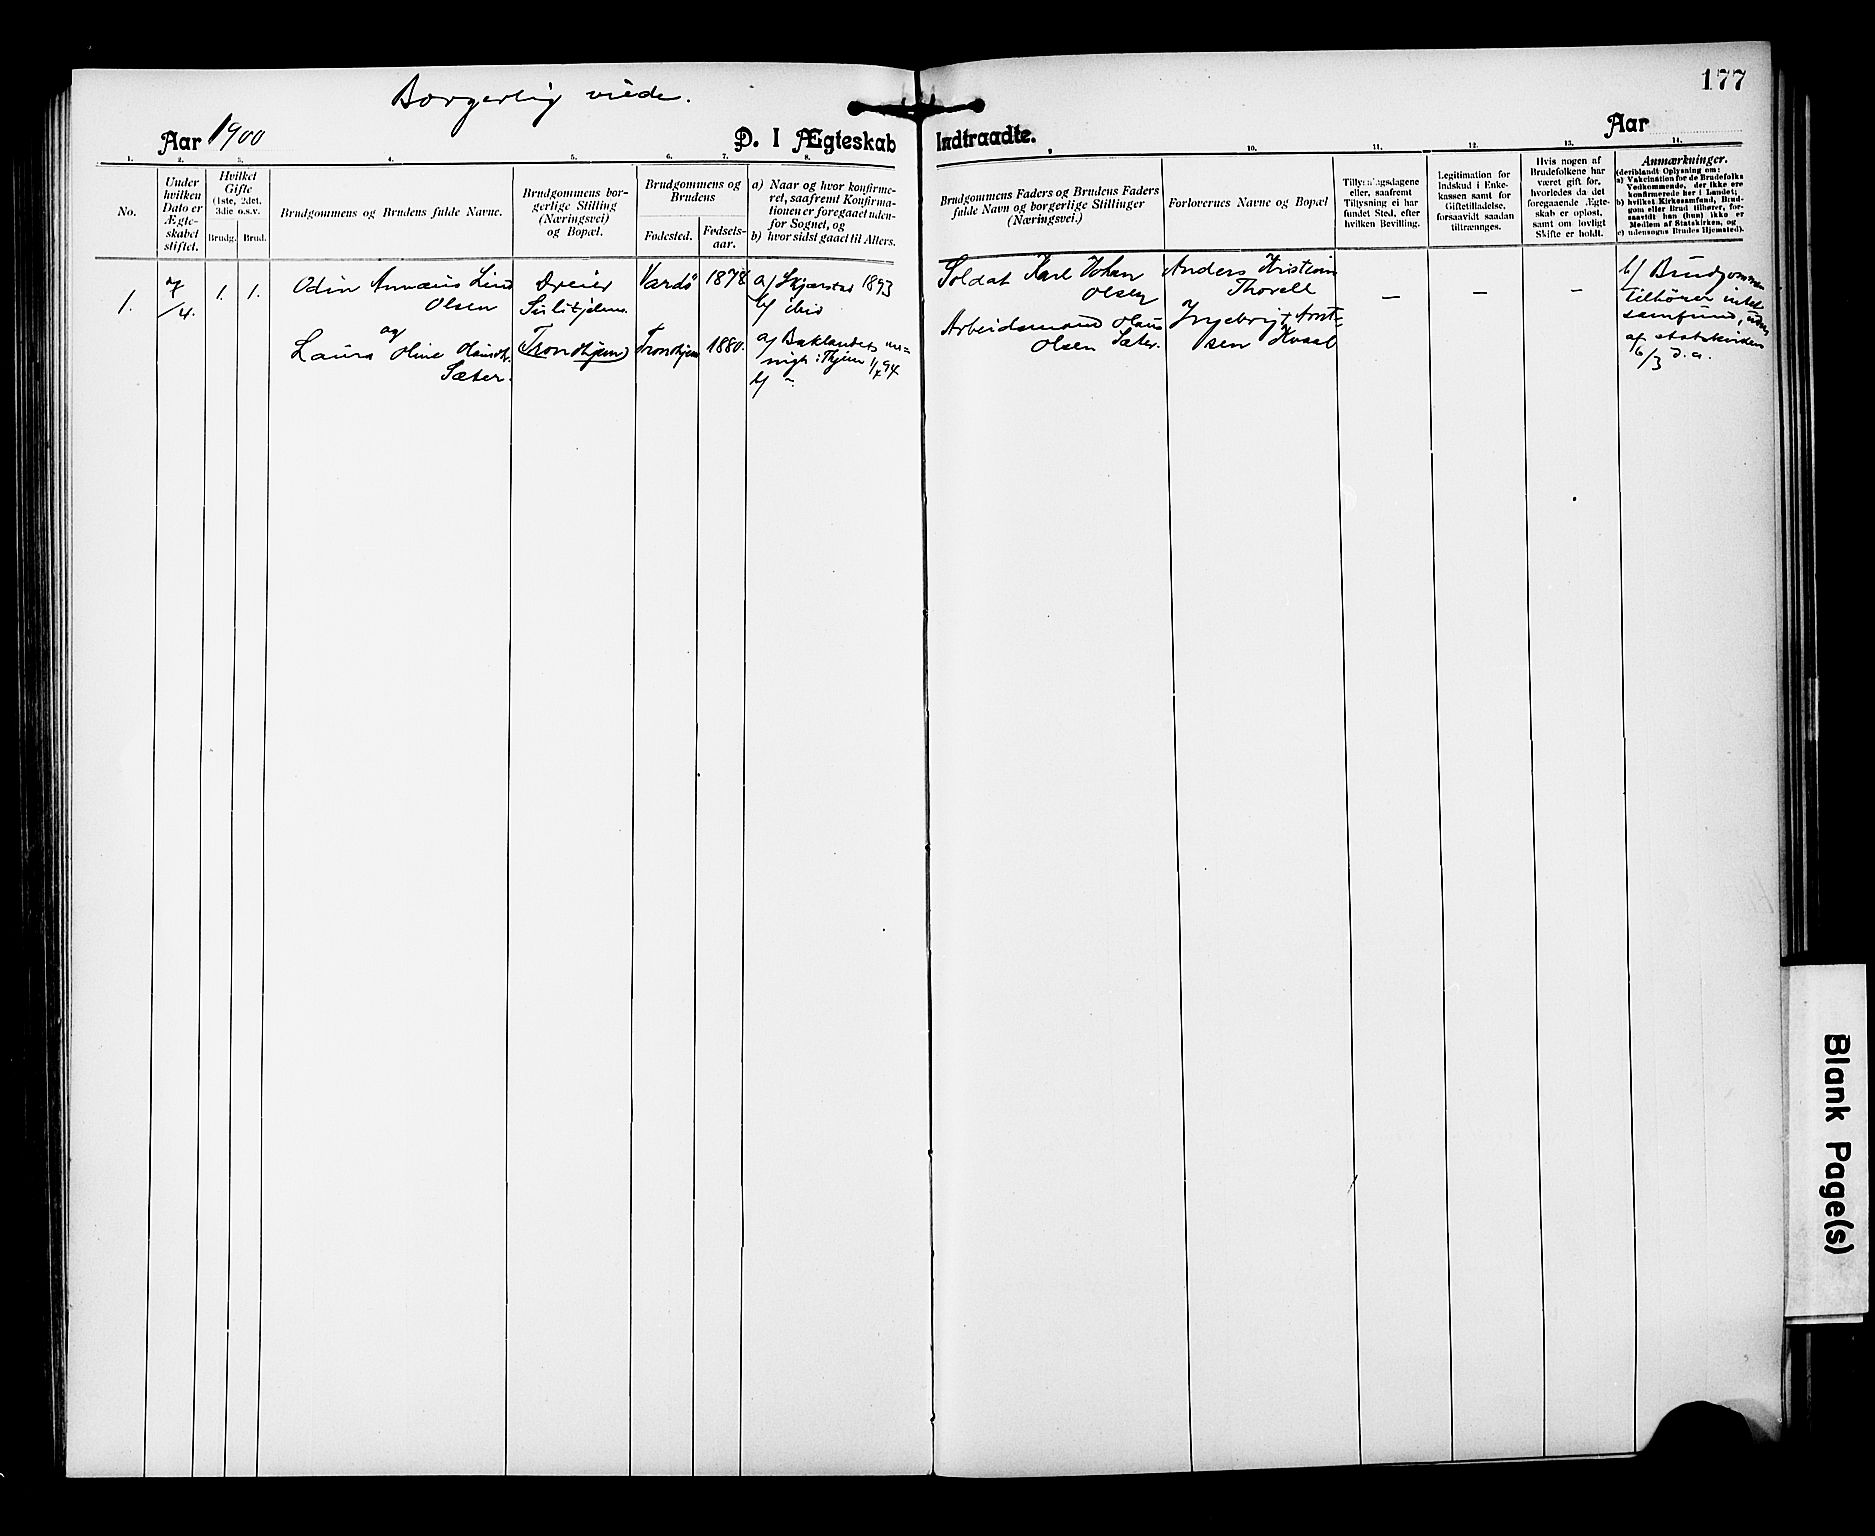 Borgerlig viede.
177
Aar 1900
D. I Ægteskab Indtraadte.
Aar
1. 2. 3. 4. 5. 6. 7. 8. 10. 11. 12. 13. 14.
No.
Under
hvilken
Dato er
Ægte-
skabet
stiftet.
Hvilket
Gifte
(1ste, 2det,
3die o.s.v.
Brudg. Brud.
Brudgommens og Brudens fulde Navne.
Brudgommens bor-
gerlige Stilling
(Næringsvei)
og Bopæl.
Brudgommens og
Brudens
Fødested.
Fødsels-
aar.
a) Naar og hvor konfirme-
ret, saafremt Konfirma-
tionen er foregaaet uden-
for Sognet, og
b) hvor sidst gaaet til Alters.
Brudgommens Faders og Brudens Faders
fulde Navn og borgerlige Stillinger
(Næringsvei.)
Forlovernes Navne og Bopæl
Tillysningsdagene
eller, saafremt
Tillysning ei har
fundet Sted, efter
hvilken Bevilling.
Legitimation for
Indskud i Enke-
kassen samt for
Giftetilladelse,
forsaavidt saadan
tiltrænges.
Hvis nogen af
Brudefolkene har
været gift før,
hvorledes da det
foregaaende Ægte-
skab er opløst,
samt om lovligt
Skifte er holdt.
Anmærkninger.
(deriblandt Oplysning om:
a) Vakcination for de Brudefolks
Vedkommende, der ikke ere
konfirmerede her i Landet;
b) hvilket Kirkesamfund, Brud-
gom eller Brud tilhører, for-
saavidt han (hun) ikke er
Medlem af Statskirken, og
c) udensogns Brudes Hjemsted).
1.
7/4.
1. 1.
Odin Annæus Lind
Olsen
og
Laura Oline
Sæter.
Dreier
Sulitjelma.
(Trondhjem)
Vardø 1878
Trondhjem 1880.
a/ Skjærstad 1893
b/ ibid
a/ Baklandets me-
nigh. i Thjem 94
b/ "
Soldat Karl Johan
Olsen
Arbeidsmand Olaus
Olsen Sæter.
Anders Kristian
Thorell
Ingebrigt
Hvaal
– – –
b/ Brudgommen
tilhører intet
samfund, udm.
af statskirken
6/3 d.a.
Blank Page(s)